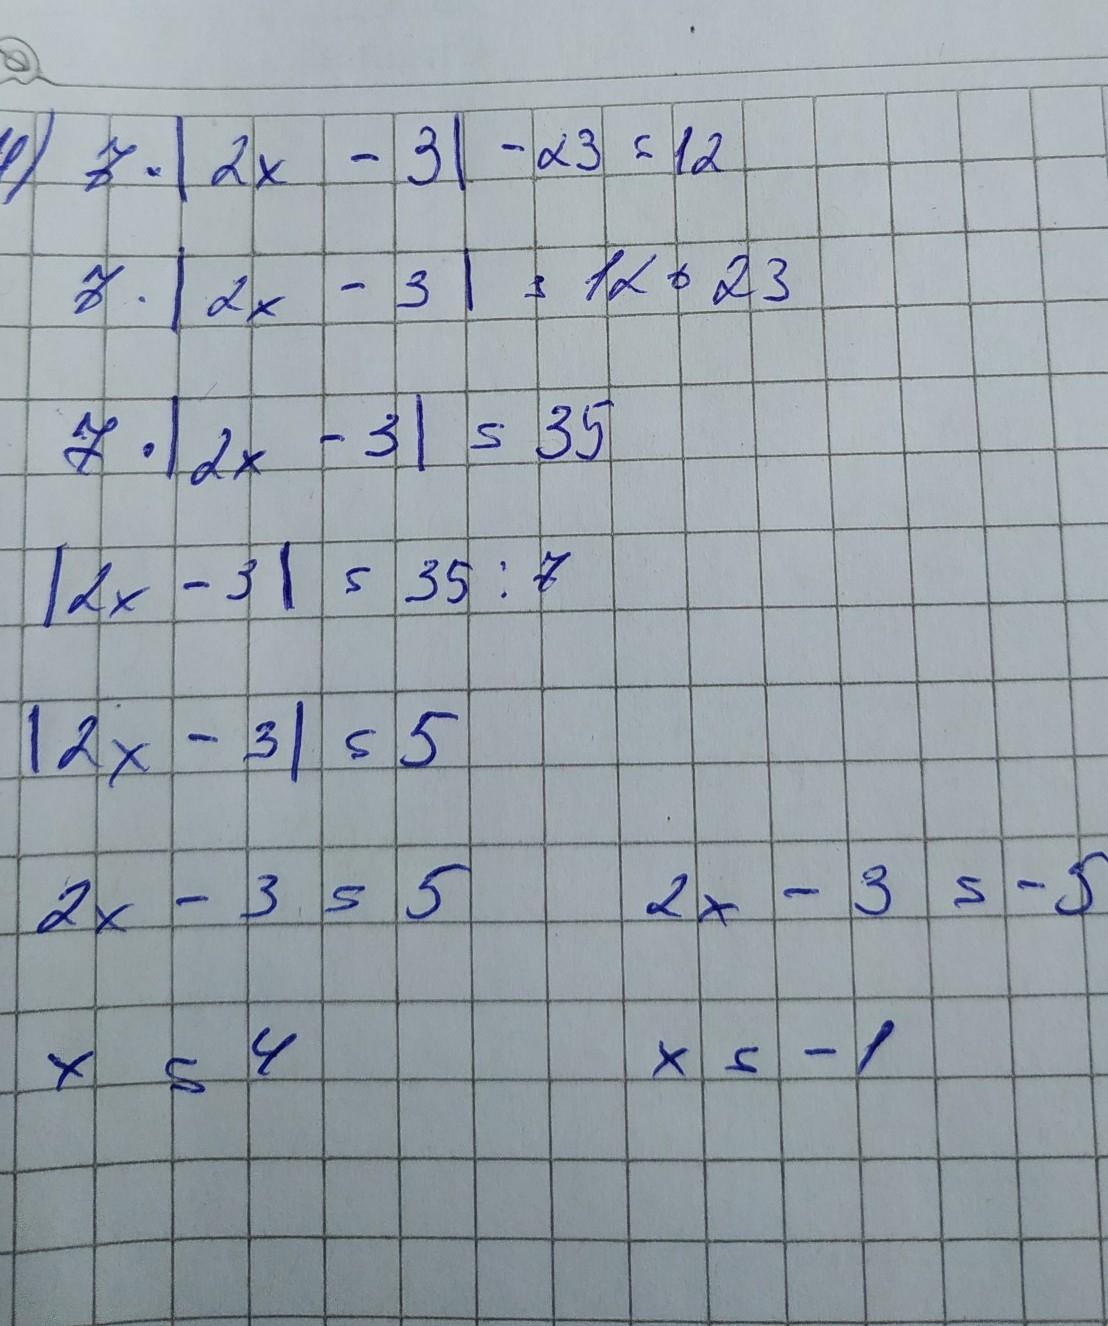 4) 7 · |2x - 3| - 23 = 12
7 · |2x - 3| = 12 + 23
7 · |2x - 3| = 35
|2x - 3| = 35 : 7
|2x - 3| = 5
2x - 3 = 5 2x - 3 = -5
x = 4 x = -1